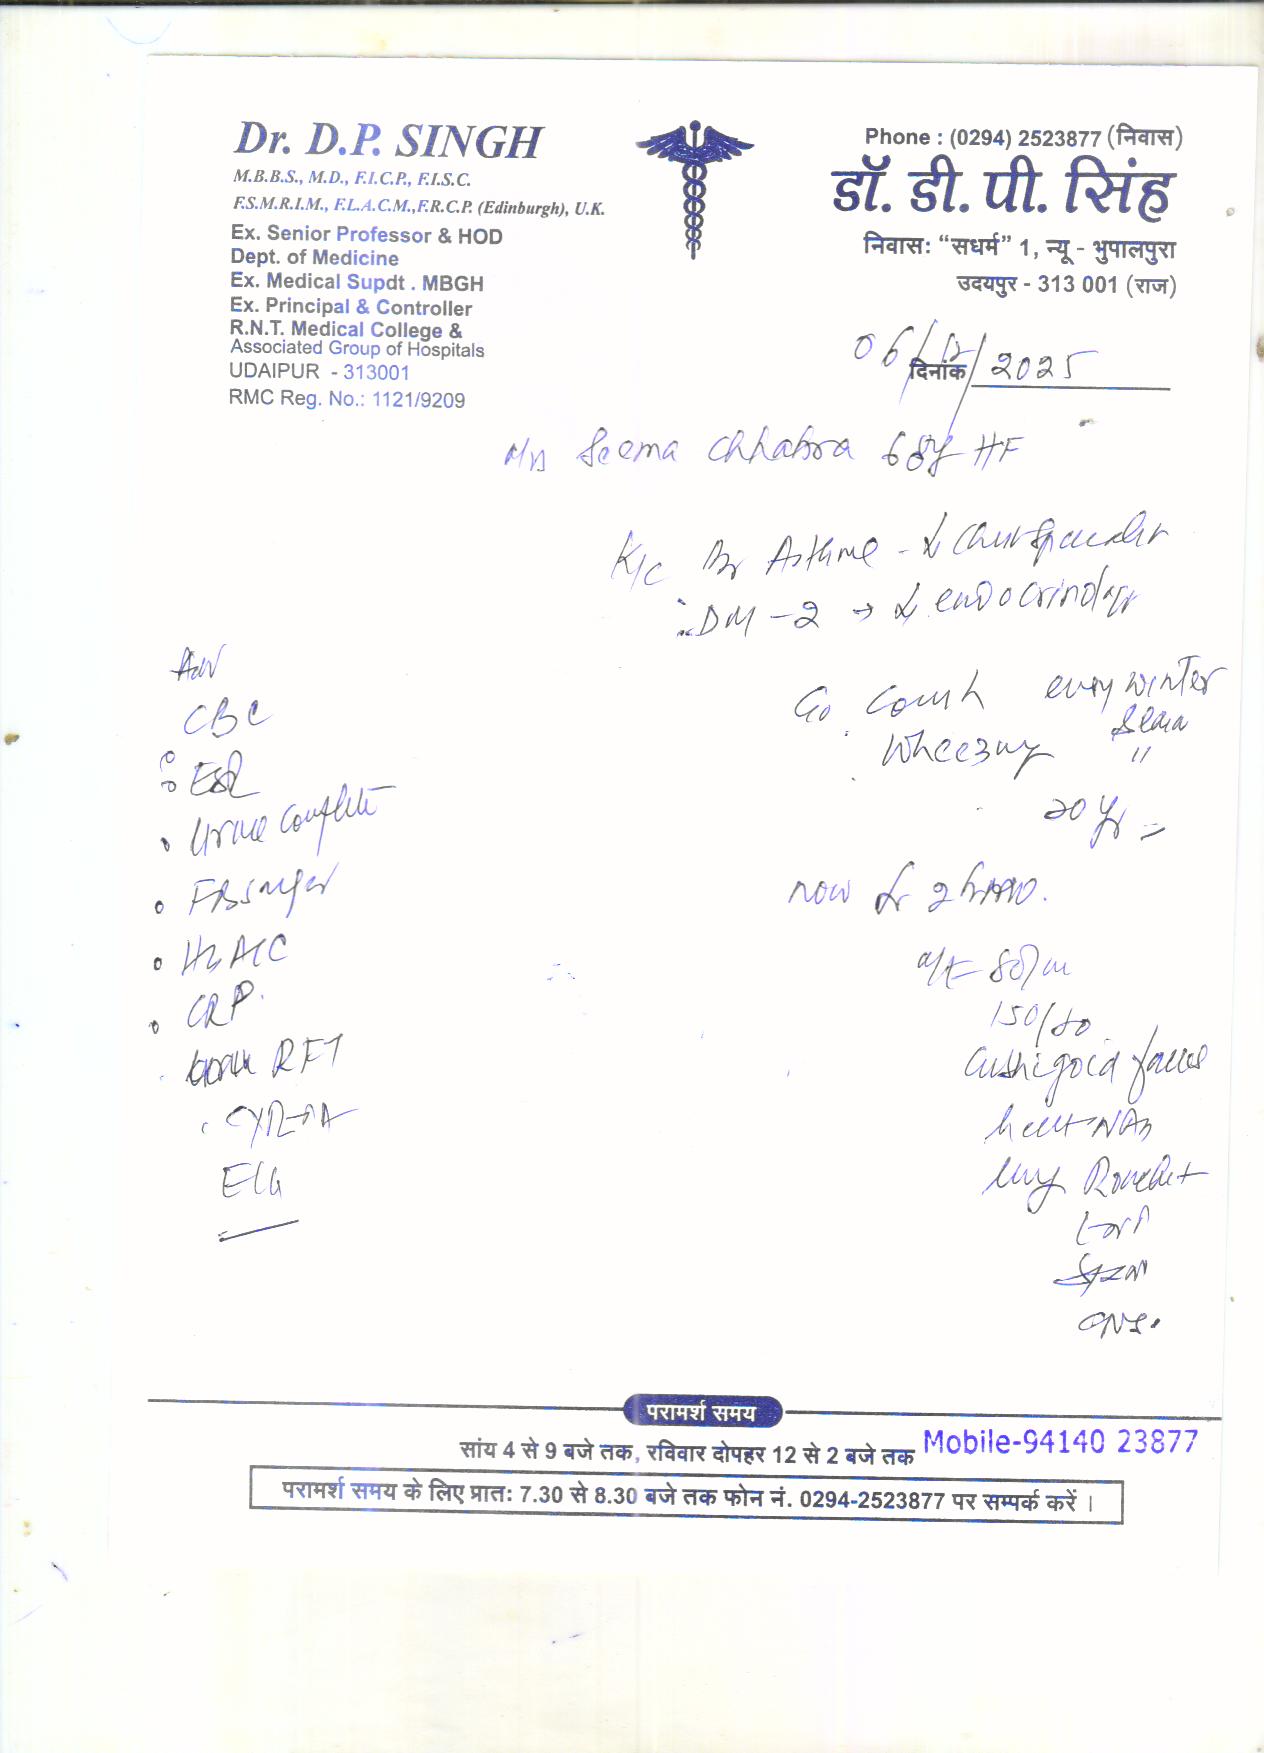 Dr. D.P. SINGH
M.B.B.S., M.D., F.I.C.P., F.I.S.C.
F.S.M.R.I.M., F.L.A.C.M.,F.R.C.P. (Edinburgh), U.K.
Ex. Senior Professor & HOD
Dept. of Medicine
Ex. Medical Supdt . MBGH
Ex. Principal & Controller
R.N.T. Medical College &
Associated Group of Hospitals
UDAIPUR - 313001
RMC Reg. No.: 1121/9209
Phone : (0294) 2523877 (निवास)
डॉ. डी. पी. सिंह
निवास: “सधर्म” 1, न्यू - भुपालपुरा
उदयपुर - 313 001 (राज)
दिनांक 06/12/2025
Seema Chhabra 68y HF
K/C Br Asthma
DM-2 → endocrinology
every winter
Wheezing "
20 yr
now 2
80/m
150/80
Cushigoid facies
CNS.
Adv
CBC
ESR
Urine Complete
FBSuger
Hb A1C
CRP.
RFT
ECG
परामर्श समय
सांय 4 से 9 बजे तक, रविवार दोपहर 12 से 2 बजे तक
Mobile-94140 23877
परामर्श समय के लिए प्रातः 7.30 से 8.30 बजे तक फोन नं. 0294-2523877 पर सम्पर्क करें ।